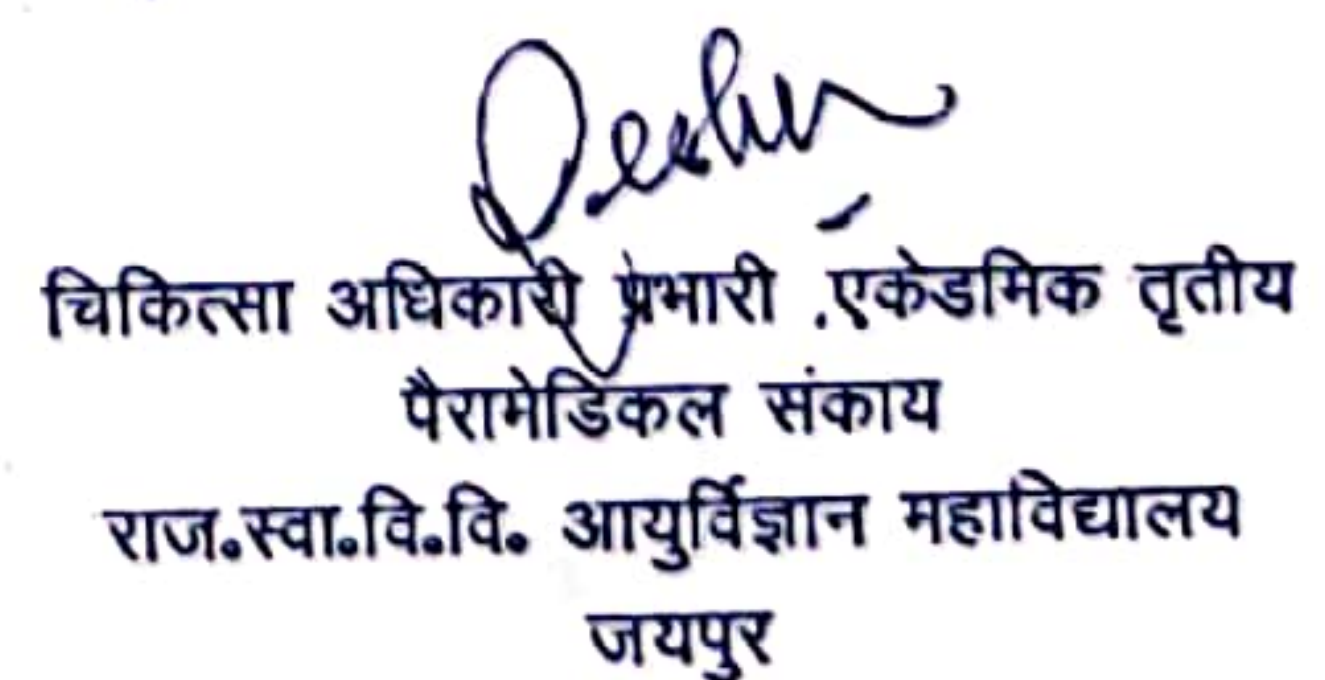 चिकित्सा अधिकारी प्रभारी .एकेडमिक तृतीय
पैरामेडिकल संकाय
राज.स्वा.वि.वि. आयुर्विज्ञान महाविद्यालय
जयपुर